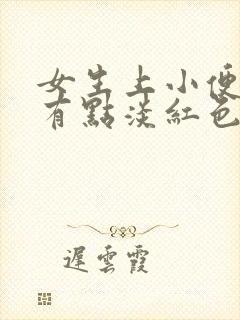 女生上小便
有點淡紅色
遲雲霞